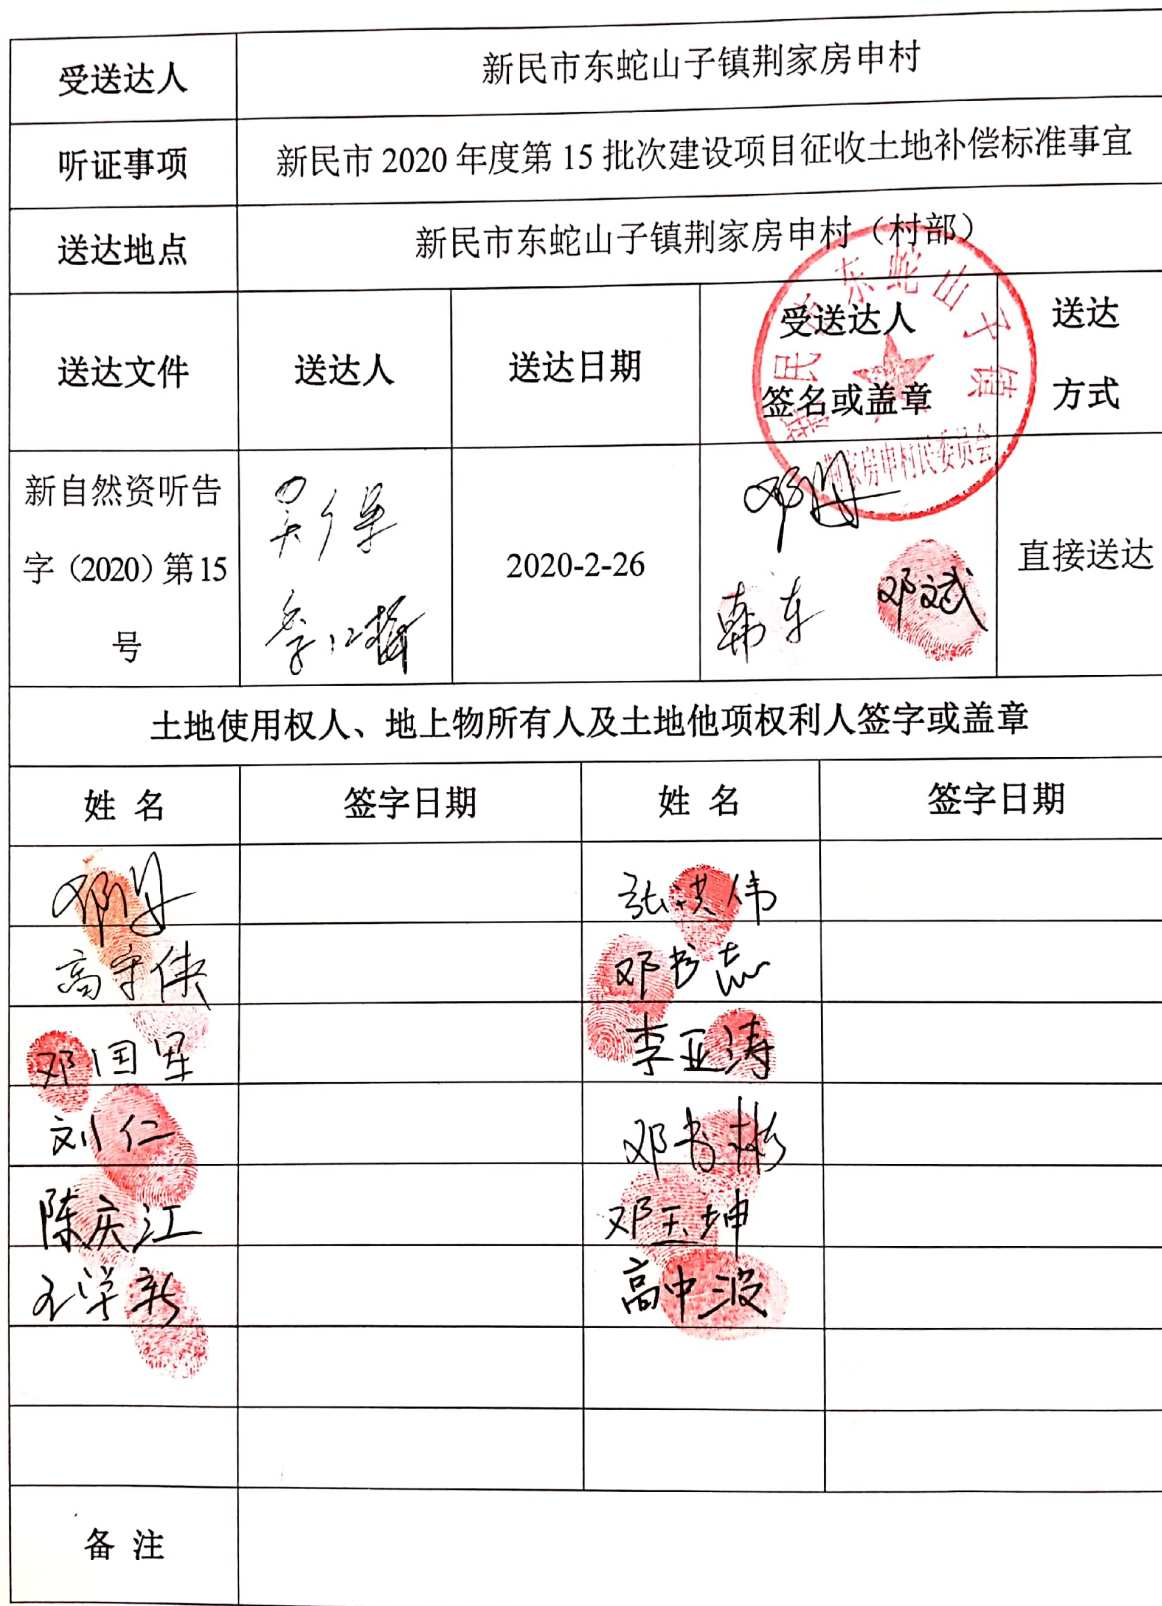 受送达人 新民市东蛇山子镇荆家房申村
听证事项 新民市 2020 年度第 15 批次建设项目征收土地补偿标准事宜
送达地点 新民市东蛇山子镇荆家房申村（村部）
送达文件 送达人 送达日期 受送达人 签名或盖章 送达 方式
新民市东蛇山子镇
荆家房申村民委员会
新自然资听告
字（2020）第 15
号
2020-2-26
韩东 邓斌
直接送达
土地使用权人、地上物所有人及土地他项权利人签字或盖章
姓 名 签字日期 姓 名 签字日期
张洪伟
高守侠 邓书志
邓国军 李亚涛
刘仁 邓书彬
陈庆江 邓玉坤
高中波
备 注